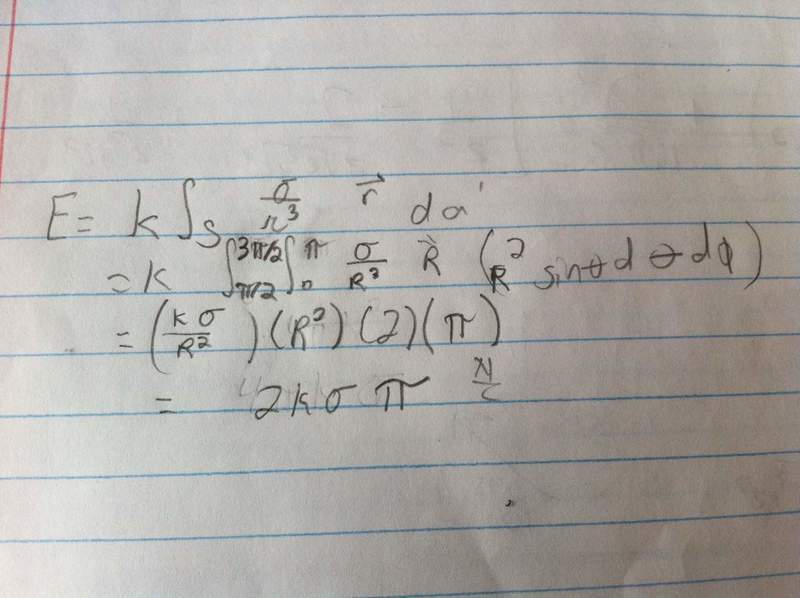 E = k ∫_S σ/r³ r⃗ da'
= k ∫_{π/2}^{3π/2} ∫_0^π σ/R³ R⃗ (R² sinθ dθ dϕ)
= (kσ/R²) (R²) (2) (π)
= 2kσπ N/C